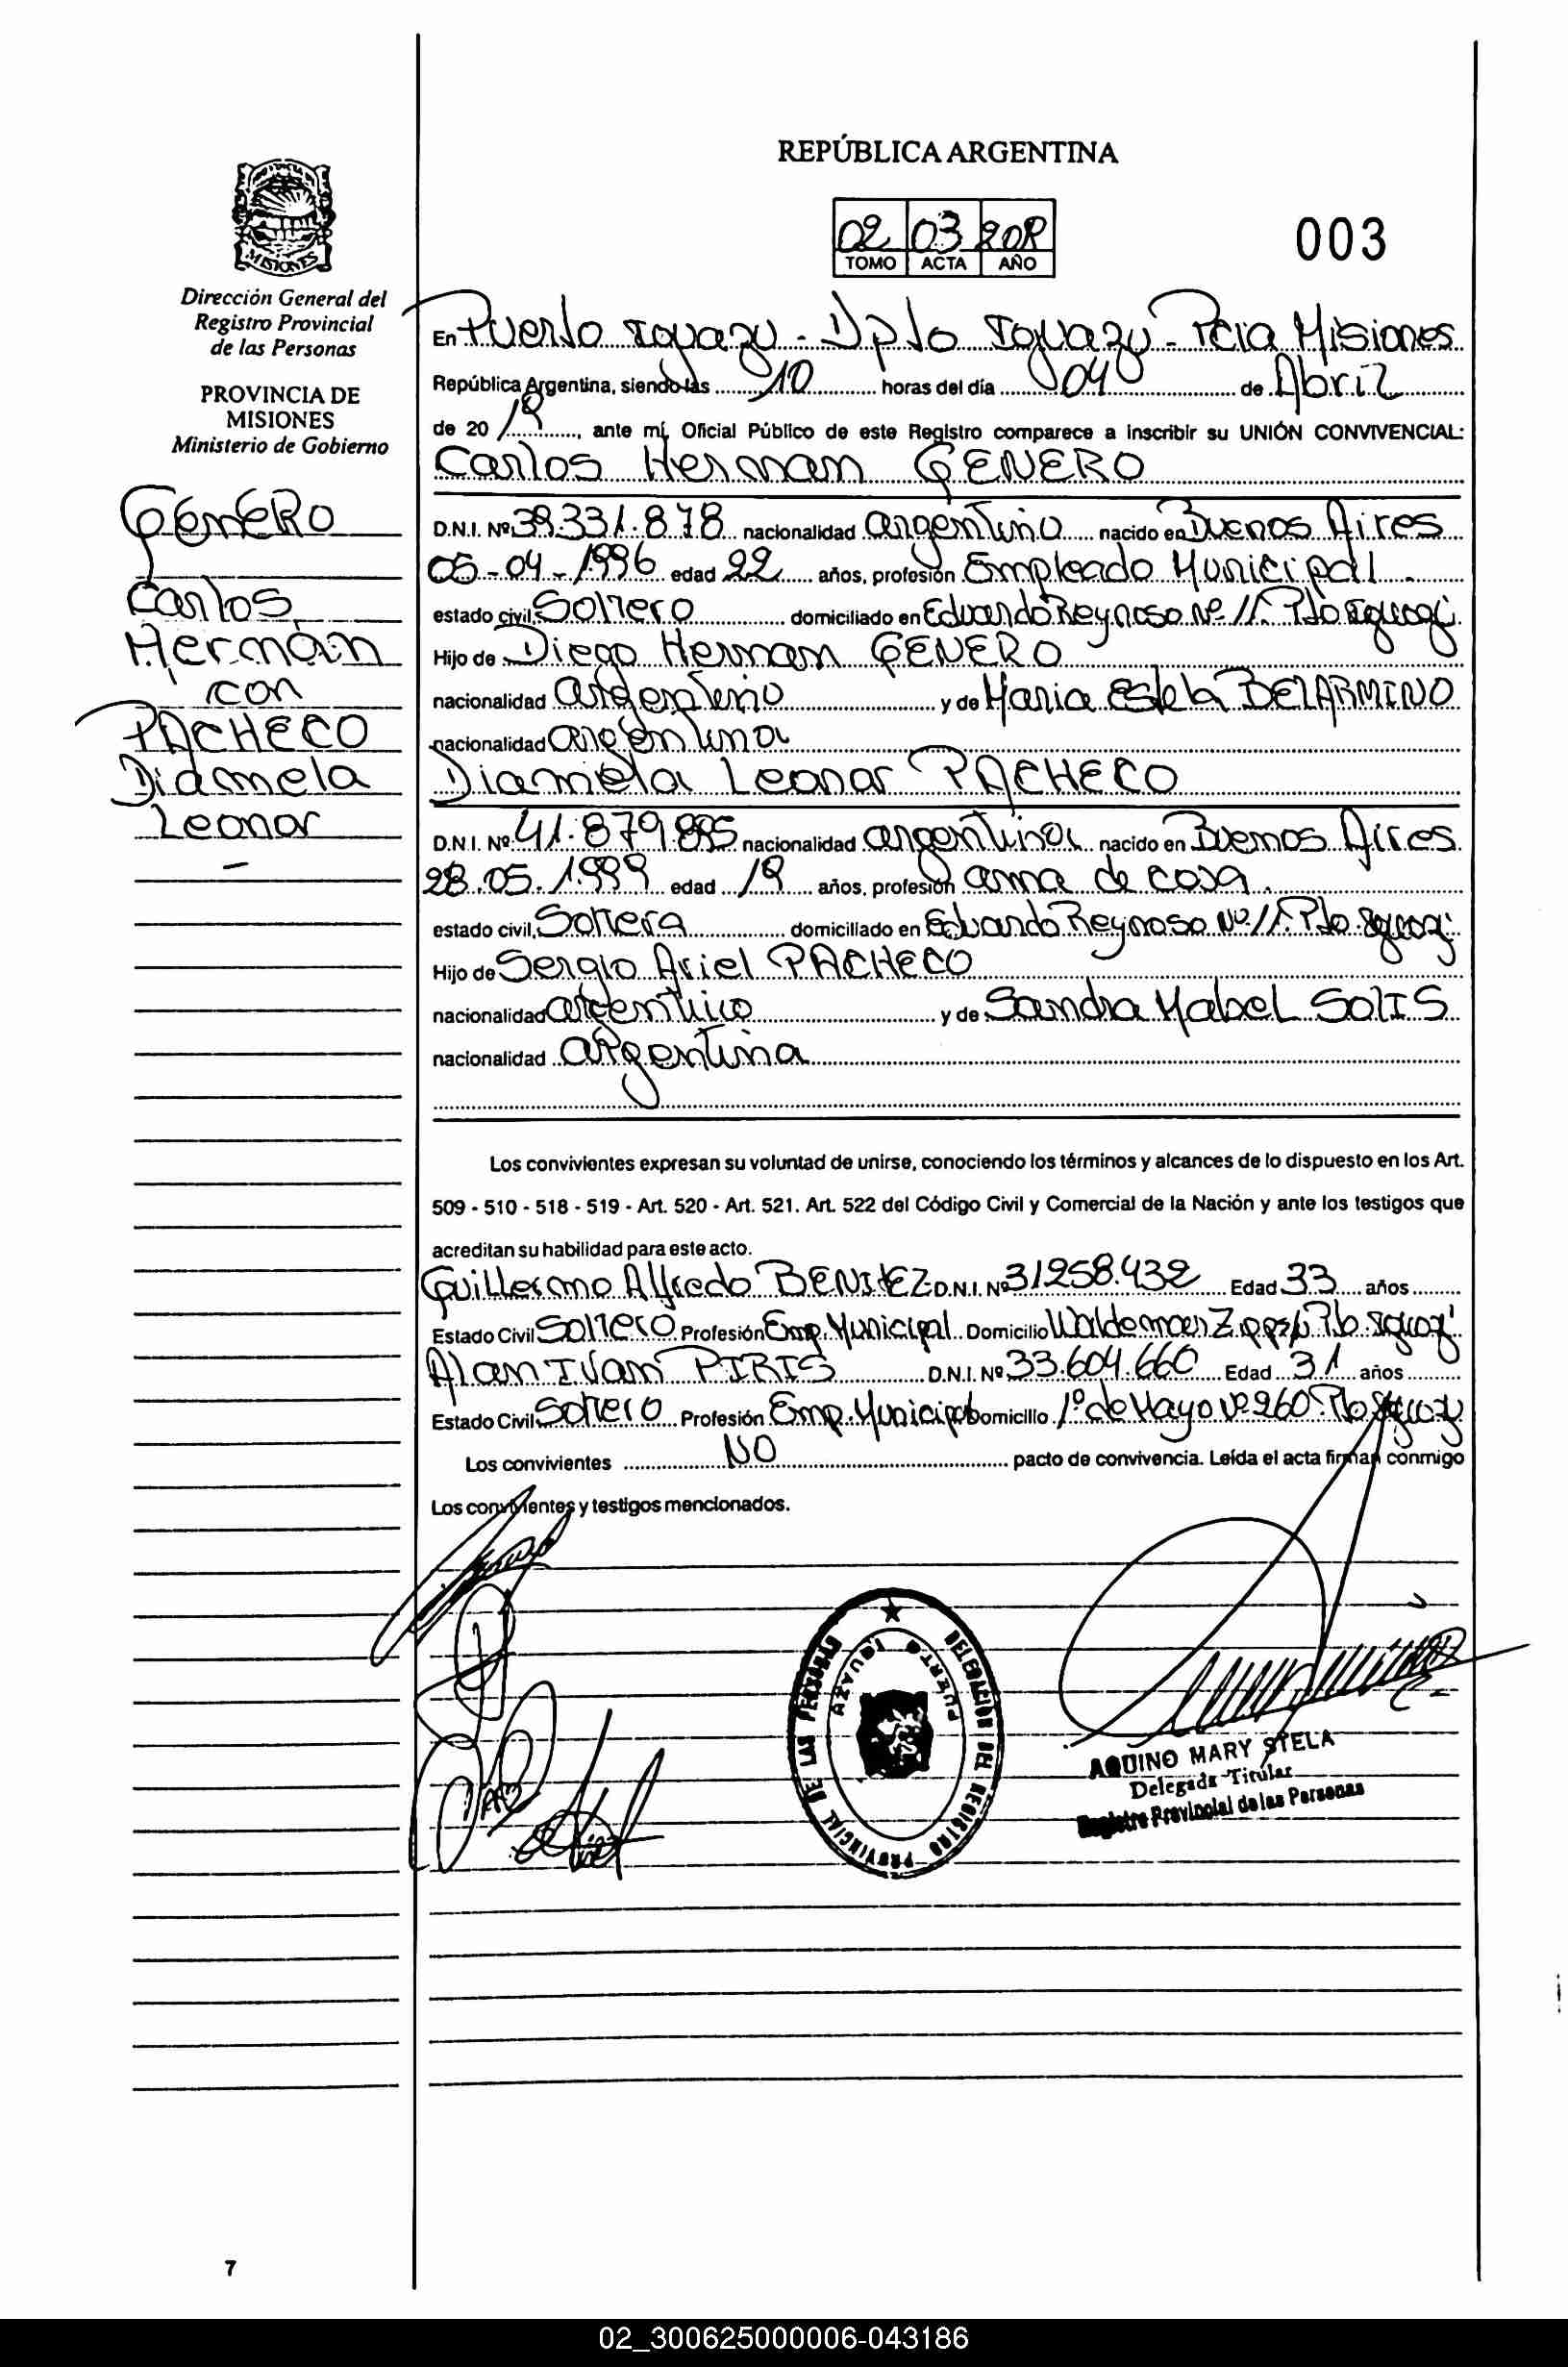 REPÚBLICA ARGENTINA
02 03
TOMO ACTA AÑO
003
MISIONES
Dirección General del
Registro Provincial
de las Personas
PROVINCIA DE
MISIONES
Ministerio de Gobierno
GENERO
Carlos
Hernán
con
PACHECO
Diamela
Leonor
En Puerto Iguazu - Dpto Iguazu - Pcia Misiones
República Argentina, siendo las 10 horas del día 04 de Abril
de 20 18, ante mí, Oficial Público de este Registro comparece a inscribir su UNIÓN CONVIVENCIAL:
Carlos Hernan GENERO
D.N.I. Nº 39.331.878 nacionalidad argentino nacido en Buenos Aires
05-04-1996 edad 22 años, profesión Empleado Municipal
estado civil, Soltero domiciliado en Eduardo Reynoso Nº 11. Pto Iguazú
Hijo de Diego Hernan GENERO
nacionalidad argentino y de Maria Estela BELARMINO
nacionalidad argentina
Diamela Leonor PACHECO
D.N.I. Nº 41.879.885 nacionalidad argentina nacido en Buenos Aires
28.05.1999 edad 18 años, profesión ama de casa.
estado civil, Soltera domiciliado en Eduardo Reynoso Nº 11. Pto Iguazú
Hijo de Sergio Ariel PACHECO
nacionalidad argentino y de Sandra Mabel SOLIS
nacionalidad argentina
Los convivientes expresan su voluntad de unirse, conociendo los términos y alcances de lo dispuesto en los Art.
509 - 510 - 518 - 519 - Art. 520 - Art. 521. Art. 522 del Código Civil y Comercial de la Nación y ante los testigos que
acreditan su habilidad para este acto.
Guillermo Alfredo BENITEZ D.N.I. Nº 31258.432 Edad 33 años
Estado Civil Soltero Profesión Emp. Municipal Domicilio Waldemar Pto Iguazú
Alan Ivan PIRIS D.N.I. Nº 33.604.660 Edad 31 años
Estado Civil Soltero Profesión Emp. Municipal Domicilio 1º de Mayo Nº 260. Pto Iguazu
Los convivientes NO pacto de convivencia. Leída el acta firman conmigo
Los convivientes y testigos mencionados.
DELEGACION DEL REGISTRO PROVINCIAL DE LAS PERSONAS
PUERTO IGUAZU
AQUINO MARY STELA
Delegada Titular
Registro Provincial de las Personas
7
02_300625000006-043186